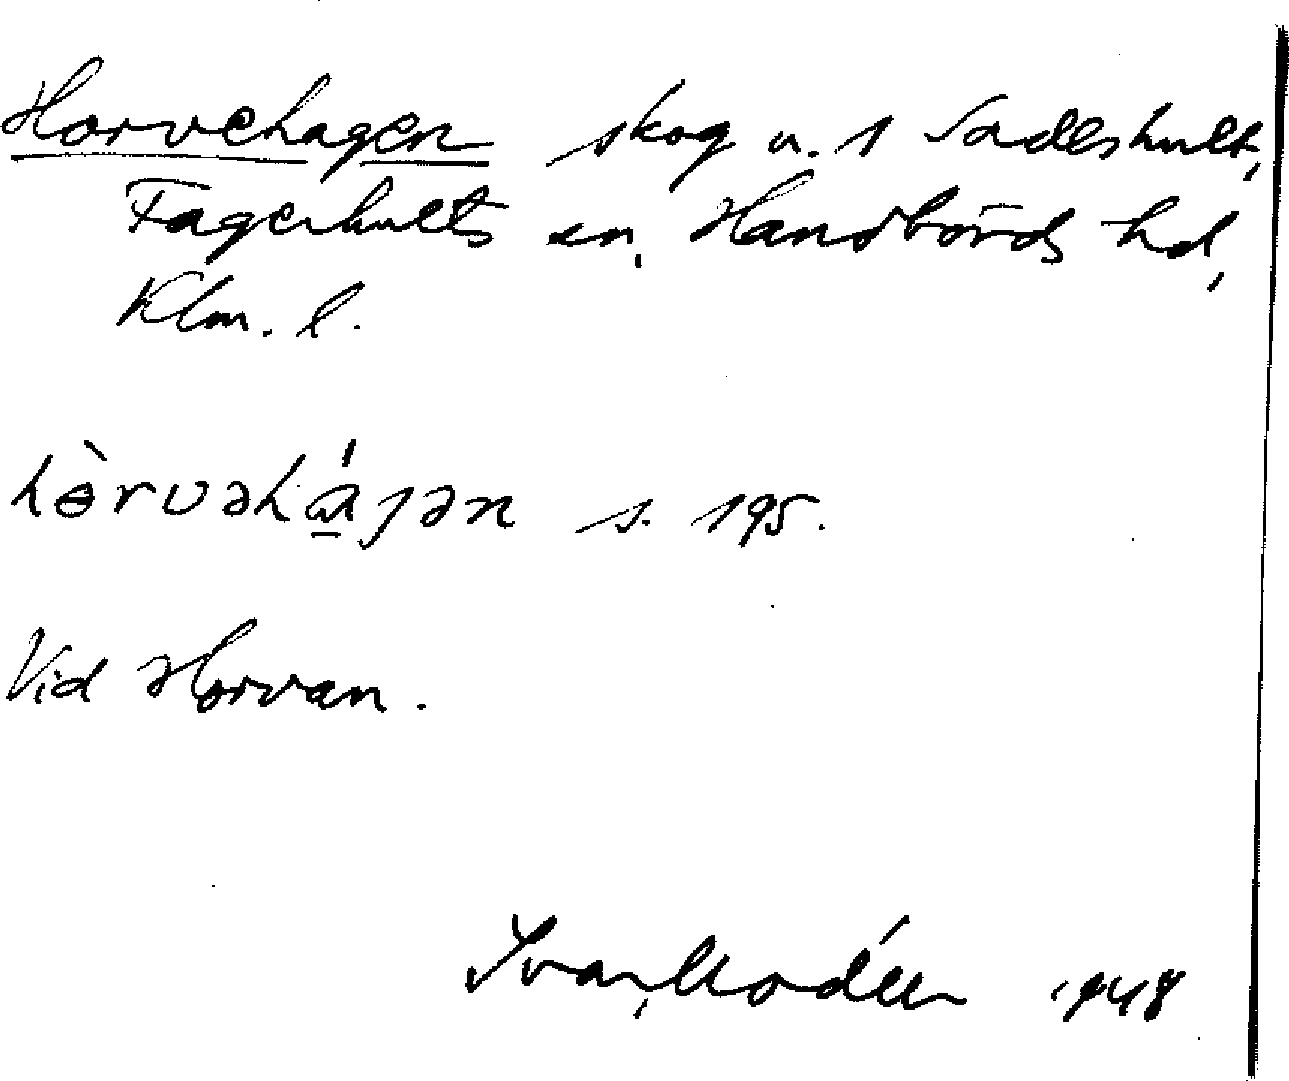 Horvehagen skog u. 1 Sadeshult,
Fagerhults sn, Handbörds hd,
Klm. l.
hɵ̀rvəhɑ̠́ȷən s. 195.
Vid Horvan.
Ivar Modéer 1948